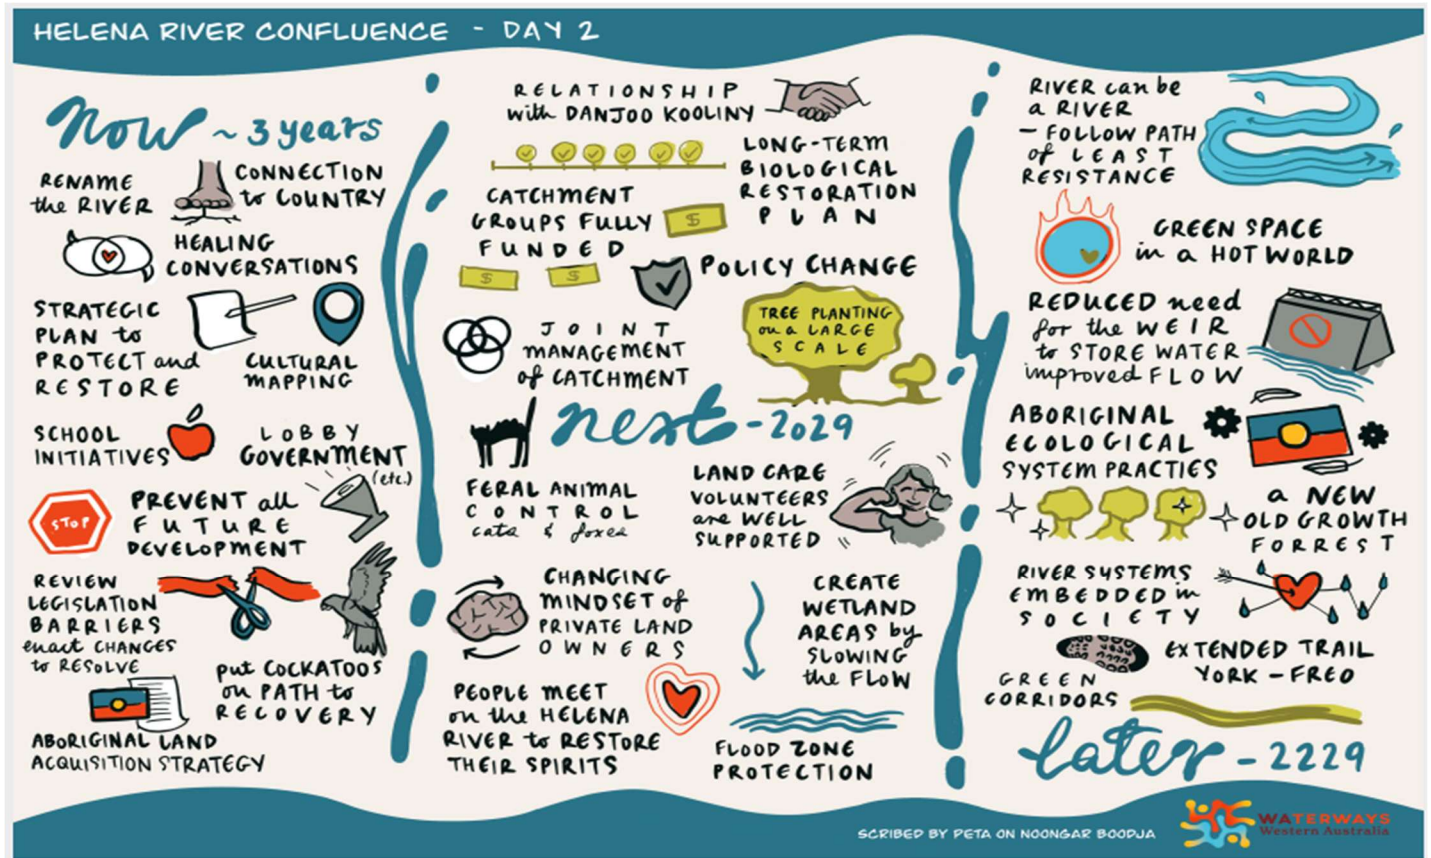 HELENA RIVER CONFLUENCE - DAY 2
now ~ 3 years
RENAME
the RIVER
CONNECTION
to COUNTRY
HEALING
CONVERSATIONS
STRATEGIC
PLAN to
PROTECT and
RESTORE
CULTURAL
MAPPING
SCHOOL
INITIATIVES
LOBBY
GOVERNMENT
(etc.)
STOP
PREVENT all
FUTURE
DEVELOPMENT
REVIEW
LEGISLATION
BARRIERS
enact CHANGES
to RESOLVE
put COCKATOOS
on PATH to
RECOVERY
ABORIGINAL LAND
ACQUISITION STRATEGY
RELATIONSHIP
with DANJOO KOOLINY
LONG-TERM
BIOLOGICAL
RESTORATION
PLAN
CATCHMENT
GROUPS FULLY
FUNDED
$
$
$
POLICY CHANGE
JOINT
MANAGEMENT
of CATCHMENT
TREE PLANTING
on a LARGE
SCALE
next - 2029
FERAL ANIMAL
CONTROL
cats & foxes
LAND CARE
VOLUNTEERS
are WELL
SUPPORTED
CHANGING
MINDSET of
PRIVATE LAND
OWNERS
CREATE
WETLAND
AREAS by
SLOWING
the FLOW
PEOPLE MEET
on the HELENA
RIVER to RESTORE
THEIR SPIRITS
FLOOD ZONE
PROTECTION
RIVER can be
a RIVER
- FOLLOW PATH
of LEAST
RESISTANCE
GREEN SPACE
in a HOT WORLD
REDUCED need
for the WEIR
to STORE WATER
improved FLOW
ABORIGINAL
ECOLOGICAL
SYSTEM PRACTIES
a NEW
OLD GROWTH
FORREST
RIVER SYSTEMS
EMBEDDED in
SOCIETY
EXTENDED TRAIL
YORK - FREO
GREEN
CORRIDORS
later - 2229
SCRIBED BY PETA ON NOONGAR BOODJA
WATERWAYS
Western Australia